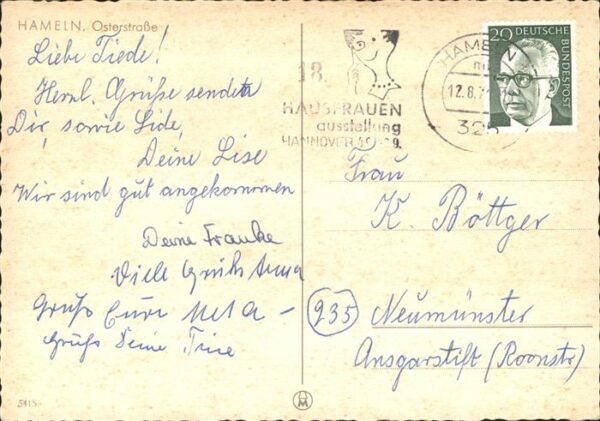 HAMELN, Osterstraße
Liebe Tiede!
Herzl. Grüße sendet
Dir, sowie Lide,
Deine Lise
Wir sind gut angekommen
Deine Frauke
Viele Grüße Anna
Gruß Eure Meta –
Gruß Deine Trine
5415
18.
HAUSFRAUEN
ausstellung
HANNOVER
HAMELN
12.8.7
325
20 DEUTSCHE BUNDESPOST
Frau
K. Böttger
235 Neumünster
Ansgarstift (Roonstr)